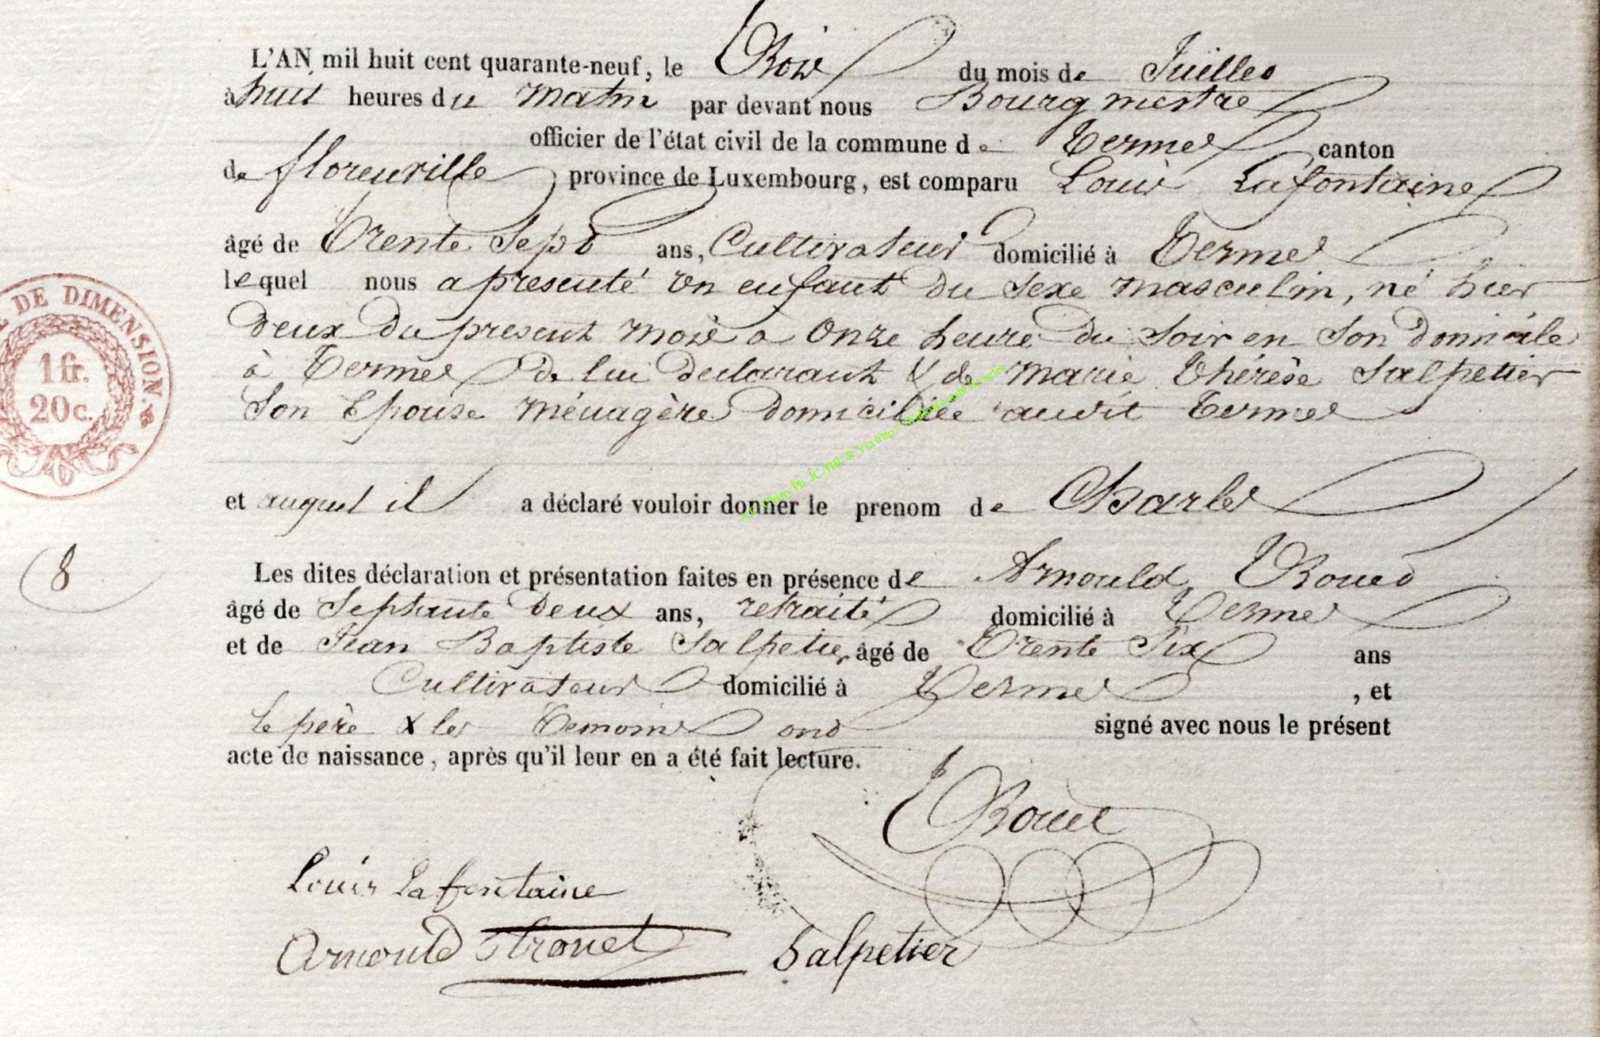 L'AN mil huit cent quarante-neuf, le Trois du mois de Juillet
à huit heures du matin par devant nous Bourgmestre
officier de l'état civil de la commune de Termes canton
de florenville province de Luxembourg, est comparu Louis Lafontaine
âgé de Trente Sept ans, Cultivateur domicilié à Termes
lequel nous a presenté un enfant du sexe masculin, né hier
deux du present mois a onze heure du soir en son domicile
à Termes de lui declarant & de marie thérèse Salpetier
son Epouse ménagère domiciliée audit Termes
et auquel il a déclaré vouloir donner le prenom de Charles
8
Les dites déclaration et présentation faites en présence de Arnould
âgé de Septante deux ans, retraité domicilié à Termes
et de Jean Baptiste Salpetier âgé de Trente Six ans
Cultivateur domicilié à Termes, et
le père & les Temoins ont signé avec nous le présent
acte de naissance, après qu'il leur en a été fait lecture.
Louis Lafontaine
Arnould
Salpetier
DE DIMENSION.
1 fr.
20 c.